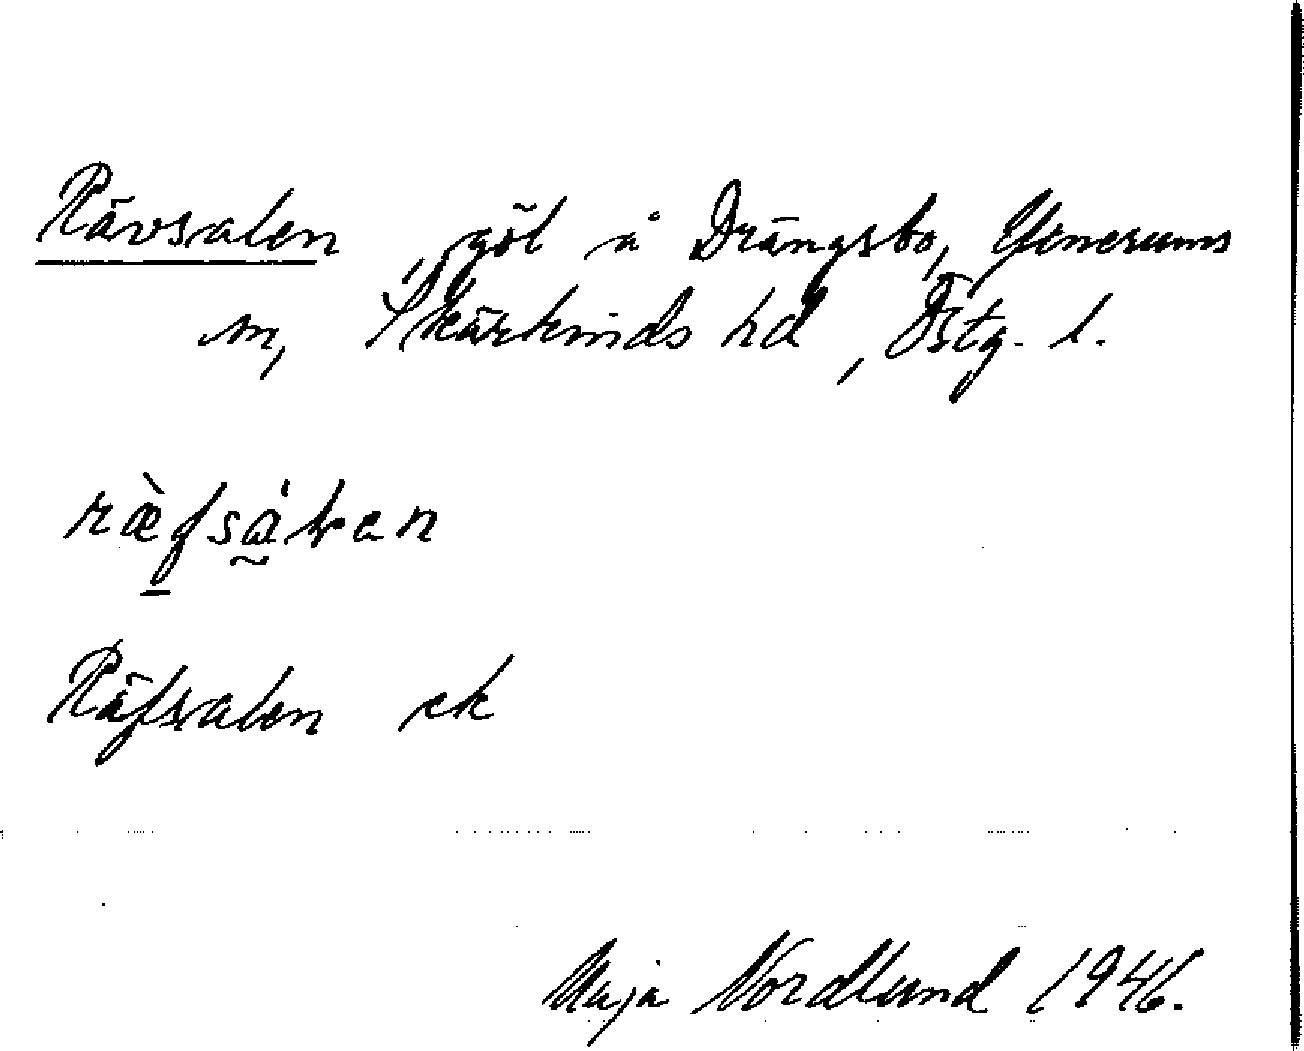 Rävsalen, göl å Drängsbo, Yxnerums
sn, Skärkinds hd, Östg. l.
ræ̀fsa̰̍ƚan
Räfsalen ek
Maja Nordlund 1946.